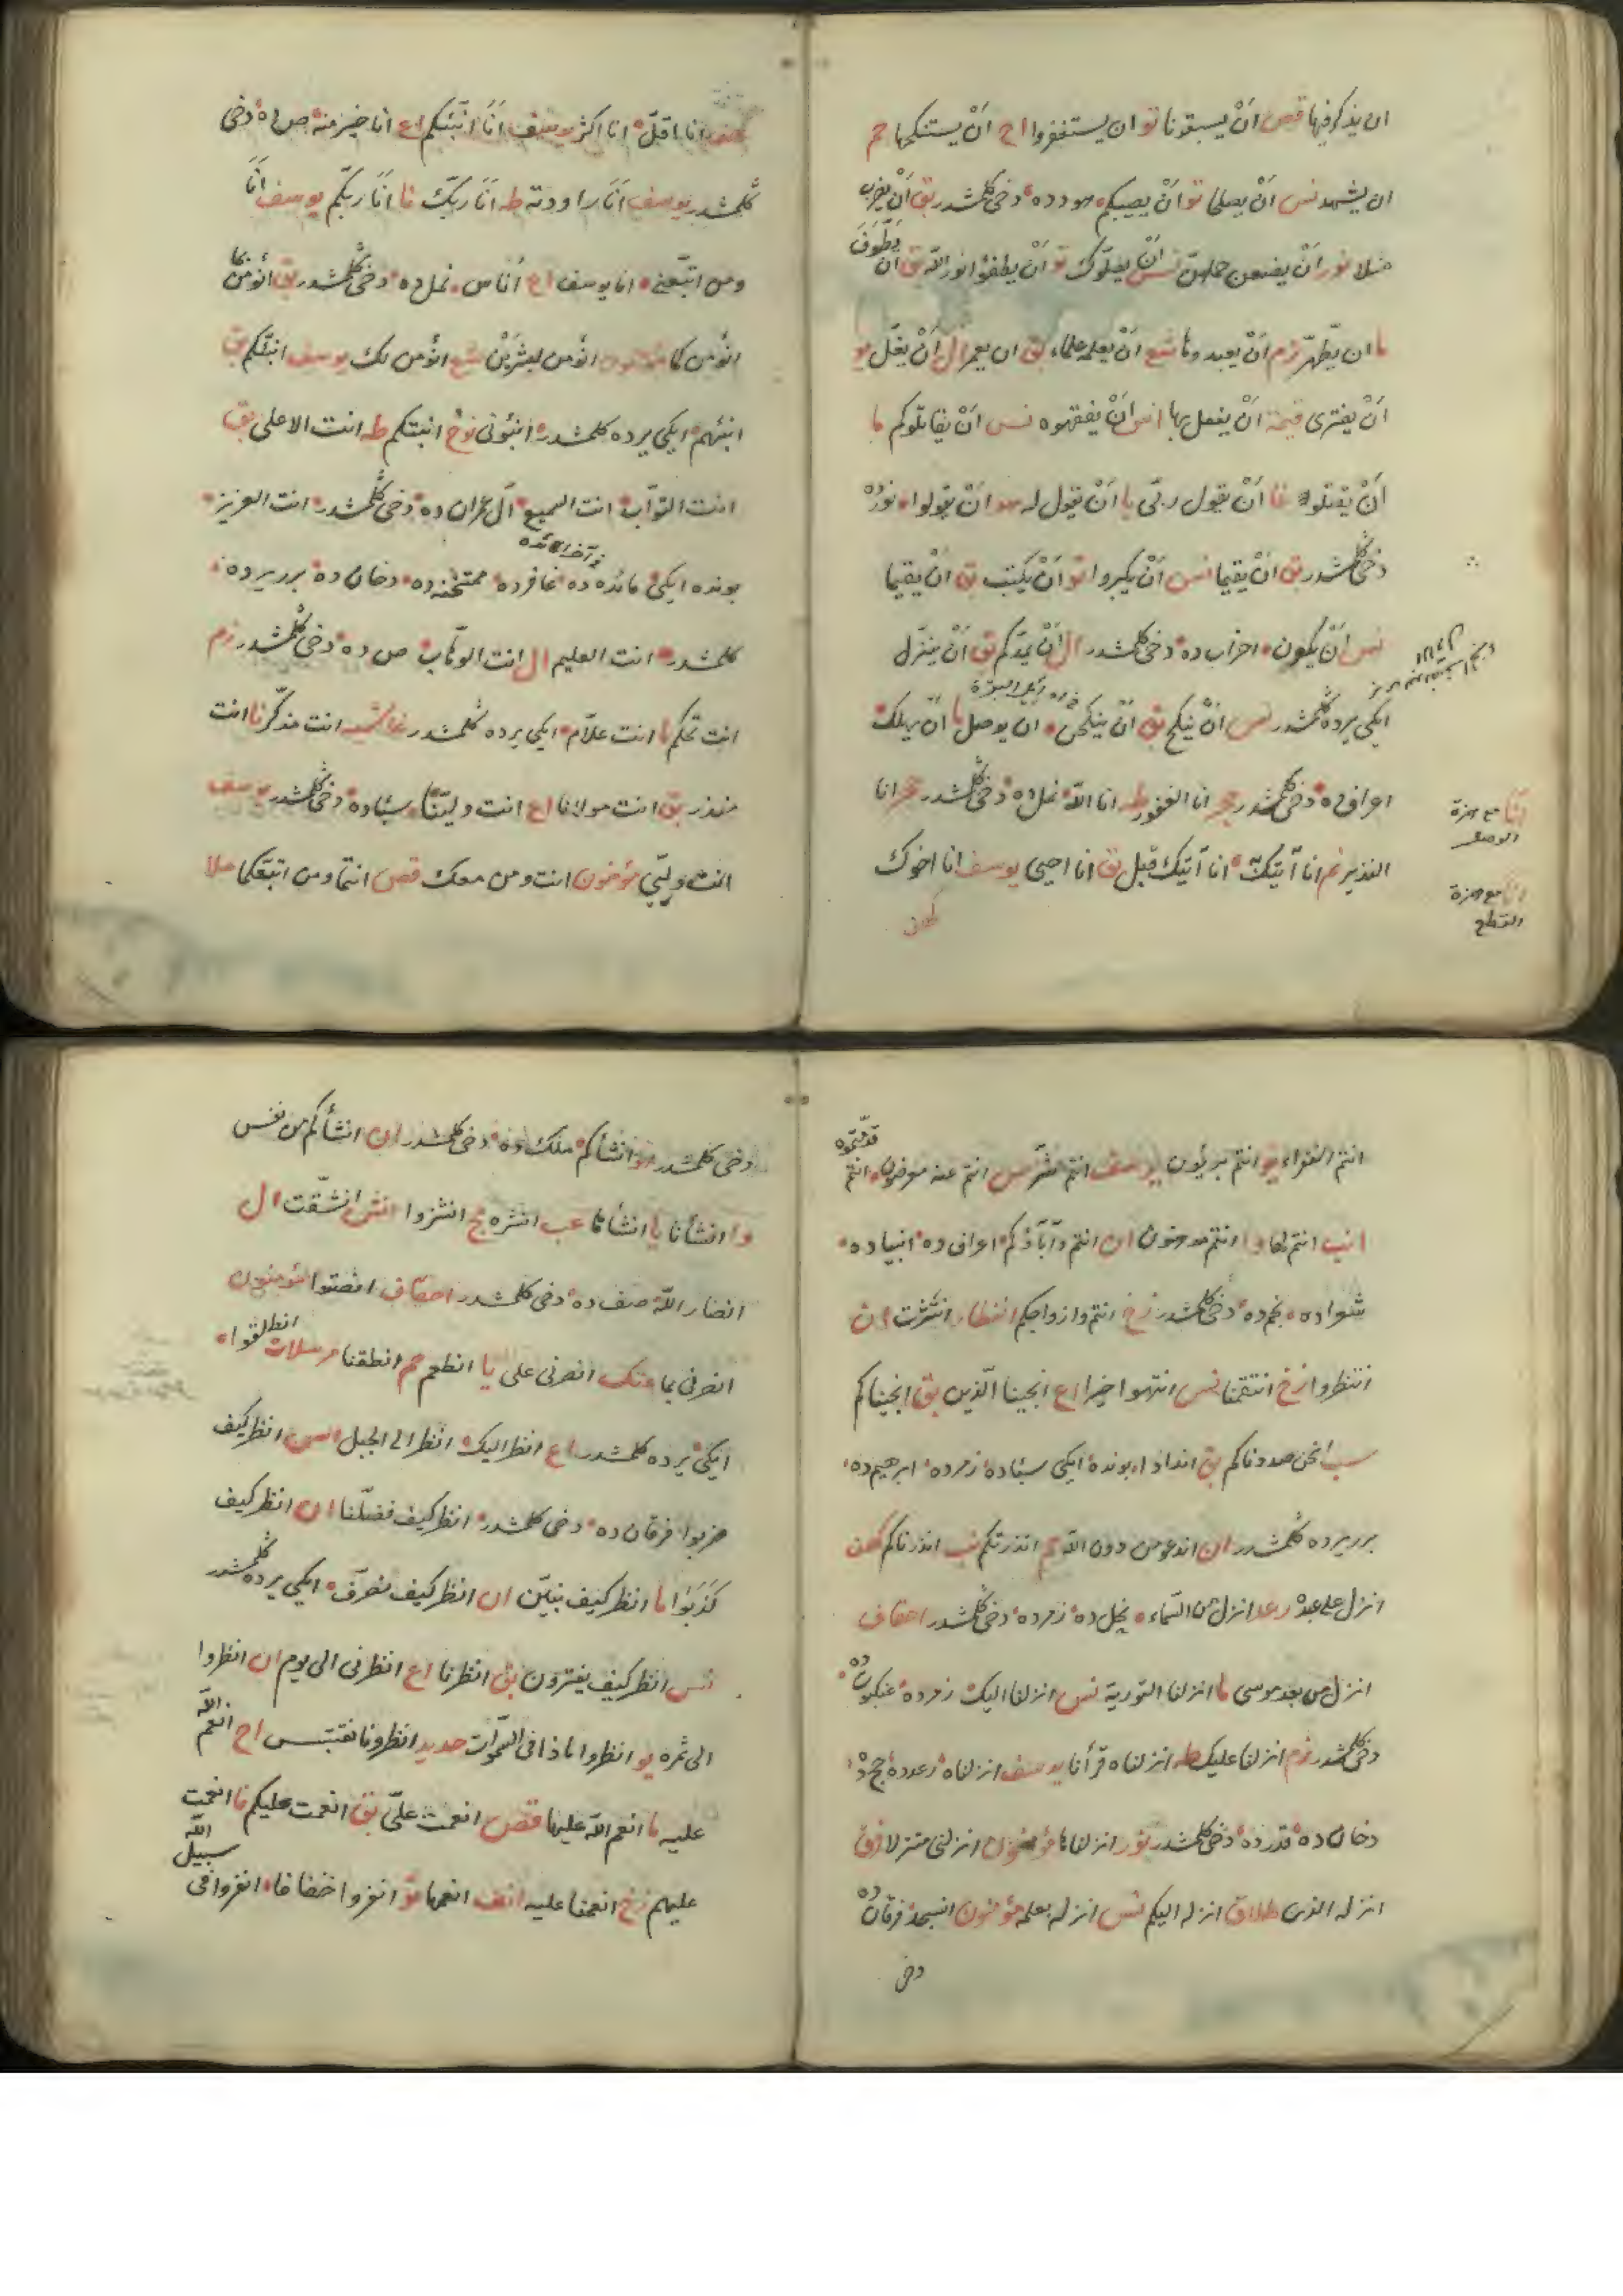 ان يذكر فيها قص أنْ يسبقونا تو ان يستغفروا اح أنْ يستنكحها حم
ان يشهد نس أنْ يصلحا تو أنْ يصيبكم هود ده دخى كلمشدر بق أنْ يضرب
مثلا نور أنْ يضعن حملهنّ نس أنْ يضلّوك تو أنْ يطفؤا نور اللّه بق أنْ يَطَّوَّفَ
ما ان يطّهّر زم أنْ يعبدوها شع أنْ يعلمه علماء بق ان يعمر ال أنْ يغلّ يو
أنْ يفترى قيمة أنْ يفعل بها انع أنْ يفقهوه نس أنْ يقاتلوكم ما
أنْ يقتلوا غا أنْ يقول ربّى يا أنْ يقول له هو أنْ يقولوا نور ده
دخى كلمشدر بق أنْ يقيما نس أنْ يكبروا تو أنْ يكتب بق أنْ يقيما
نس أنْ يكون احزاب ده دخى كلمشدر ال أنْ يمدّكم بق أنْ ينزّل
ايكى يرده كلمشدر نس أنْ ينكح بق أنْ ينكحن ان يوصل ما أنْ يهلك
اعراف ده دخى كلمشدر حجر انا الغفور طه انا اللّه نمل ده دخى كلمشدر حجر انا
النذير نم انا آتيك انا آتيك قبل بق انا احيى يوسف انا اخوك
كهف
انا مع همزة
الوصل
انا مع همزة
القطع
كهف انا اقلّ انا اكثر يوسف أنَا انبّئكم اع انا خير منه ص ده دخى
كلمشدر يوسف أنَا راودته طه أنَا ربّك نا أنَا ربّكم يوسف أنَا
ومن اتبعنى انا يوسف اع أناس نمل ده دخى كلمشدر بق أنؤمن كما
انؤمن كما مؤمنون انؤمن لبشرين شع انؤمن لك يوسف انبّئكم بق
انبئهم ايكى يرده كلمشدر انبئونى نوح انبتكم طه انت الاعلى بق
انت التوّاب انت السميع آل عمران ده دخى كلمشدر انت العزيز
بونده ايكى مائده ده غافرده ممتحنه ده دخان ده برر يرده
كلمشدر انت العليم ال انت الوهّاب ص ده دخى كلمشدر زم
انت تحكم ما انت علّام ايكى يرده كلمشدر غاشيه انت مذكّر نا انت
منذر بق انت مولانا اع انت وليّنا سبأ ده دخى كلمشدر يوسف
انت وليّى مؤمنون انت ومن معك قص انتما ومن اتبعكما ملا
انتم الفقراء يو انتم بريئون يوسف انتم شرّ ص انتم عنه معرضون انتم قدّمتموه
انب انتم لها وا انتم مدهنون ان انتم وآباؤكم اعراف ده انبيا ده
شعرا ده نجم ده دخى كلمشدر زخ انتم وازواجكم انفطار انتثرت ان
انتظروا زخ انتقمنا نس انتهوا خيرا اع انجينا الّذين بق انجيناكم
سبأ نحن صددناكم بق اندادا بونده ايكى سبأ ده زمرده ابرهيم ده
برر يرده كلمشدر ان اندعو من دون اللّه انذرتكم نب انذرناكم كهف
انزل على عبده رعد انزل من السّماء نحل ده زمرده دخى كلمشدر احقاف
انزل من بعد موسى ما انزلنا التورية نس انزلنا اليك زمرده عنكبوت ده
دخى كلمشدر زم انزلنا عليك طه انزلناه قرأنا يوسف انزلناه رعدده حج ده
دخان ده قدر ده دخى كلمشدر نور انزلناها مؤمنون انزلنى منزلا فرق
انزله الذى طلاق انزله اليكم نس انزله بعلمه مؤمنون انسجد فرقان ده
دخى
دخى كلمشدر هو انشأكم ملك ده دخى كلمشدر ان انشأكم من نفس
وا انشأنا يا انشأها عب انشره مج انشزوا انش انشقّت ال
انصار اللّه صف ده دخى كلمشدر احقاف انصتوا مؤمنون
انصرنى بما عنك انصرنى على يا انطعم حم انطقنا مرسلات انطلقوا
ايكى يرده كلمشدر اع انظر اليك انظر الى الجبل اسرى انظر كيف
ضربوا فرقان ده دخى كلمشدر انظر كيف فضّلنا ان انظر كيف
كَذَبُوا ما انظر كيف نبيّن ان انظر كيف نصرّف ايكى يرده كلمشدر
نس انظر كيف يفترون بق انظرنا اع انظرنى الى يوم ان انظروا
الى ثمره يو انظروا ماذا فى السّموات حديد انظرونا نقتبس اح انعم اللّه
عليه ما انعم اللّه عليهما قص انعمت علىّ بق انعمت عليكم فا انعمت
عليهم زخ انعمنا عليه انف انعمها تو انفروا خفافا انفروا فى سبيل اللّه